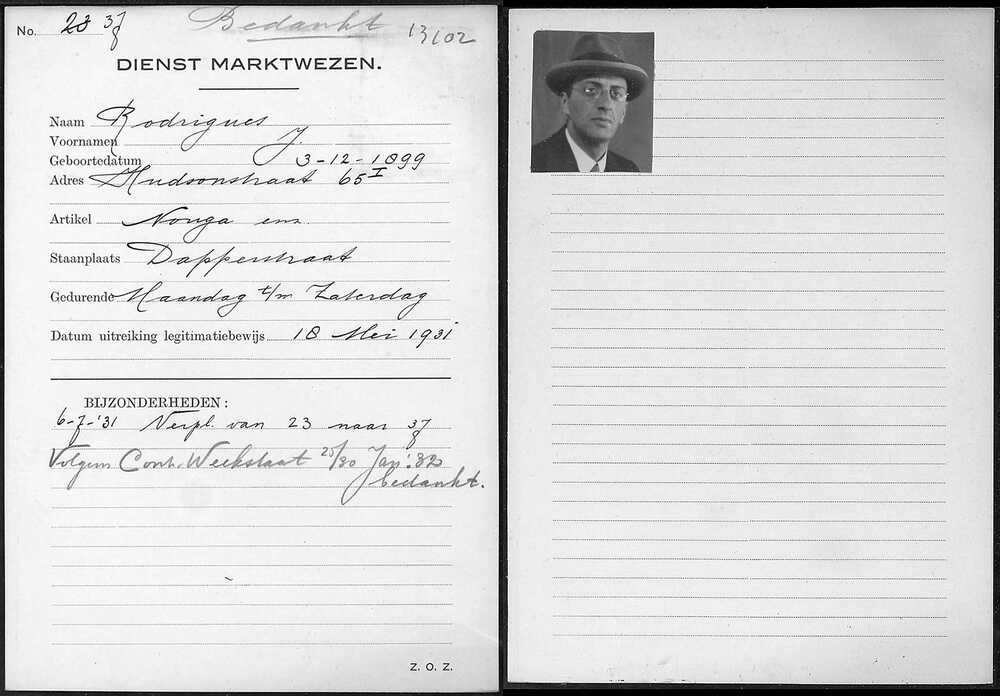 No. 23 37
8
Bedankt
13102
DIENST MARKTWEZEN.
Naam Rodrigues
Voornamen J.
Geboortedatum 3-12-1899
Adres Hudsonstraat 65 I
Artikel Nouga enz.
Staanplaats Dapperstraat
Gedurende Maandag t/m Zaterdag
Datum uitreiking legitimatiebewijs 18 Mei 1931
BIJZONDERHEDEN:
6-7-'31 Verpl. van 23 naar 37
8
Volgens Contr. Weekstaat 25/30 Jan '32
bedankt.
Z. O. Z.